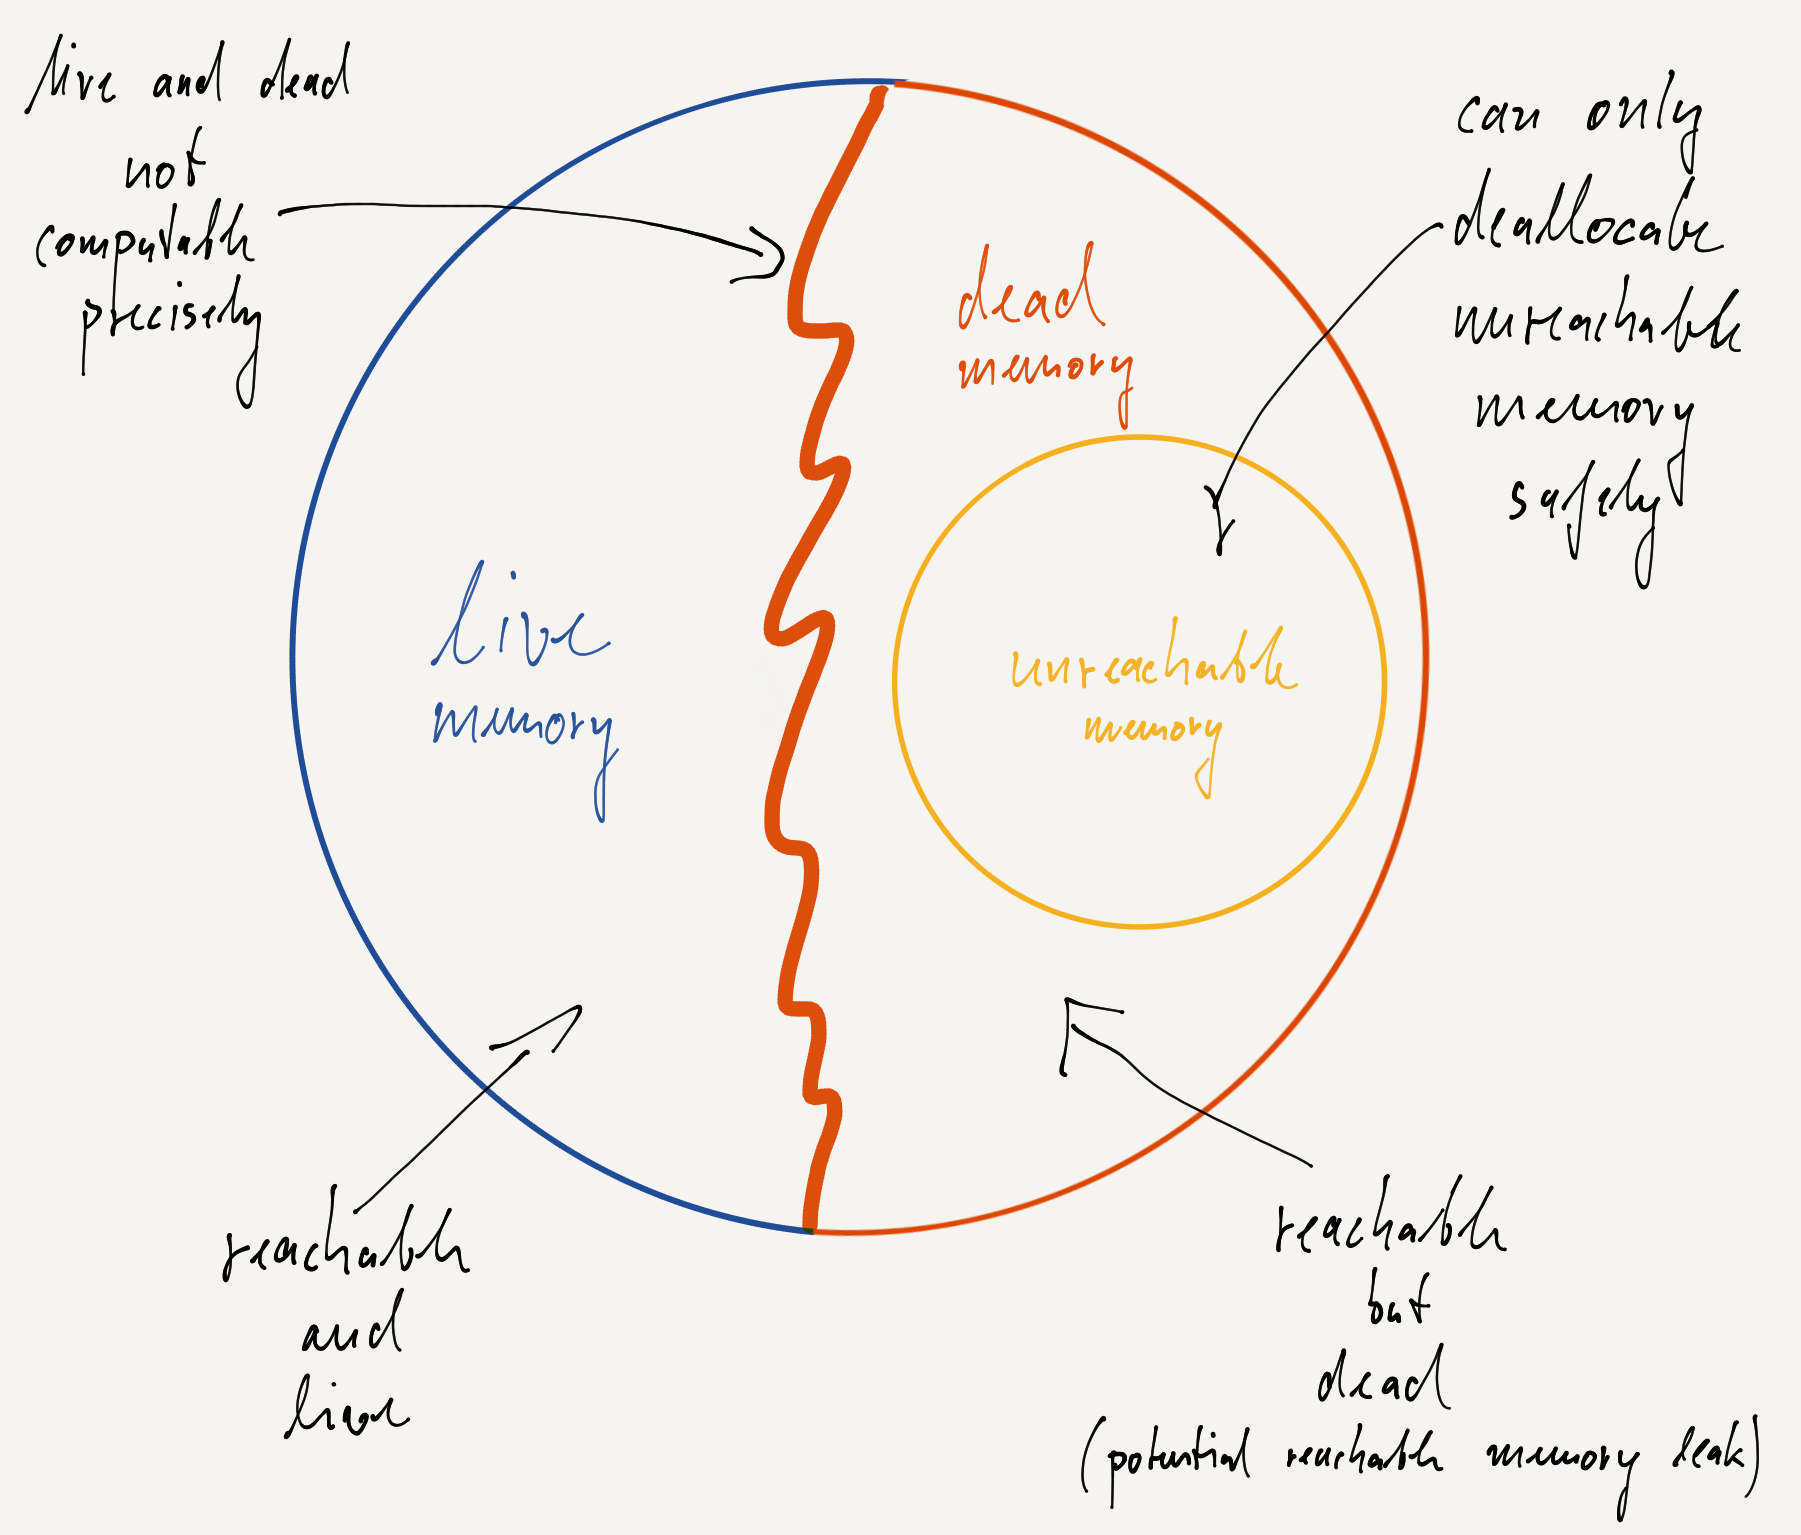 live and dead
not
computable
precisely
can only
deallocate
unreachable
memory
safely
dead
memory
live
memory
unreachable
memory
reachable
and
live
reachable
but
dead
(potential reachable memory leak)